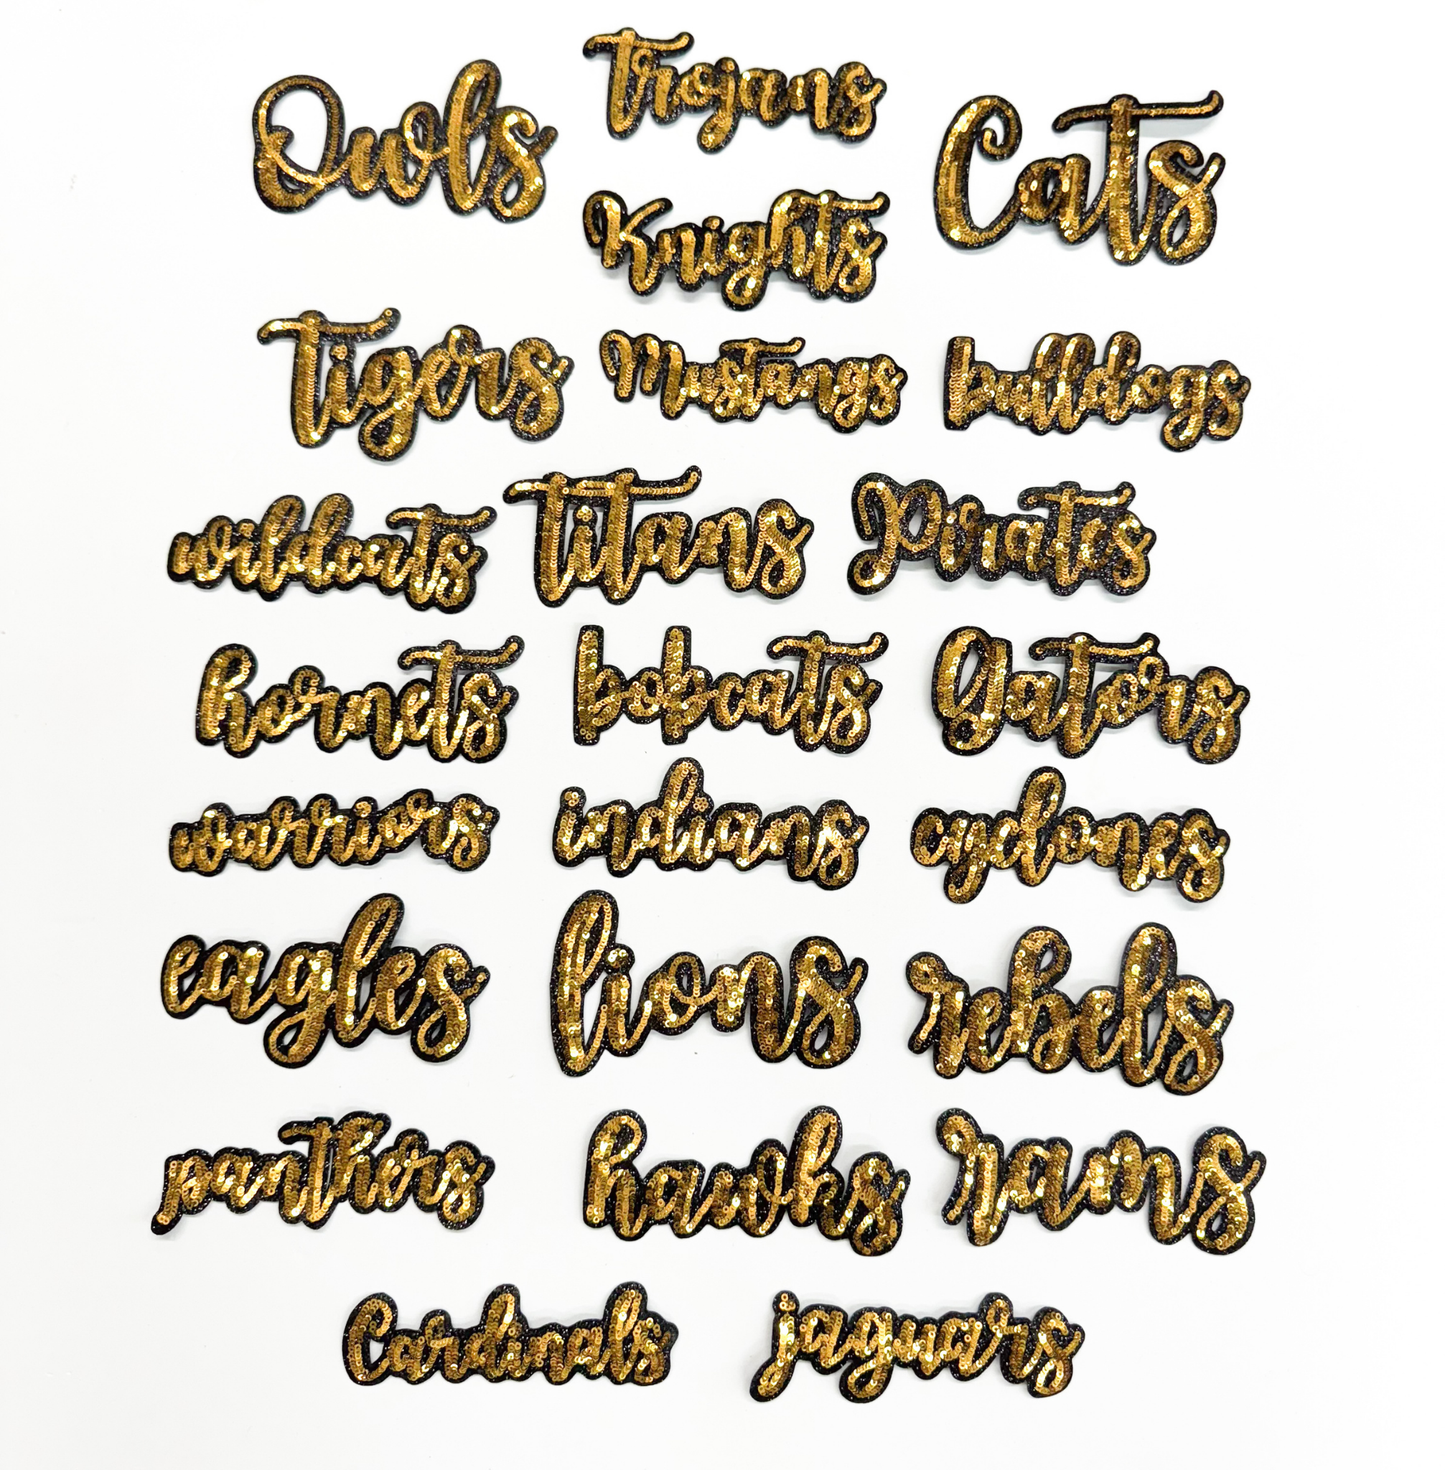 Owls
Trojans
Cats
Knights
Tigers
Mustangs
bulldogs
wildcats
titans
Pirates
hornets
bobcats
gators
warriors
indians
cyclones
eagles
lions
rebels
panthers
hawks
rams
Cardinals
jaguars